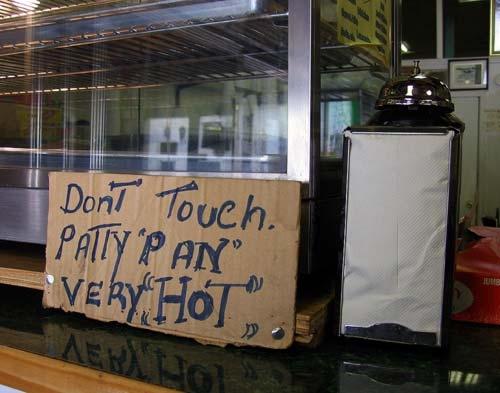 DonT Touch.
PATTY "PAN"
VERY "HOT"